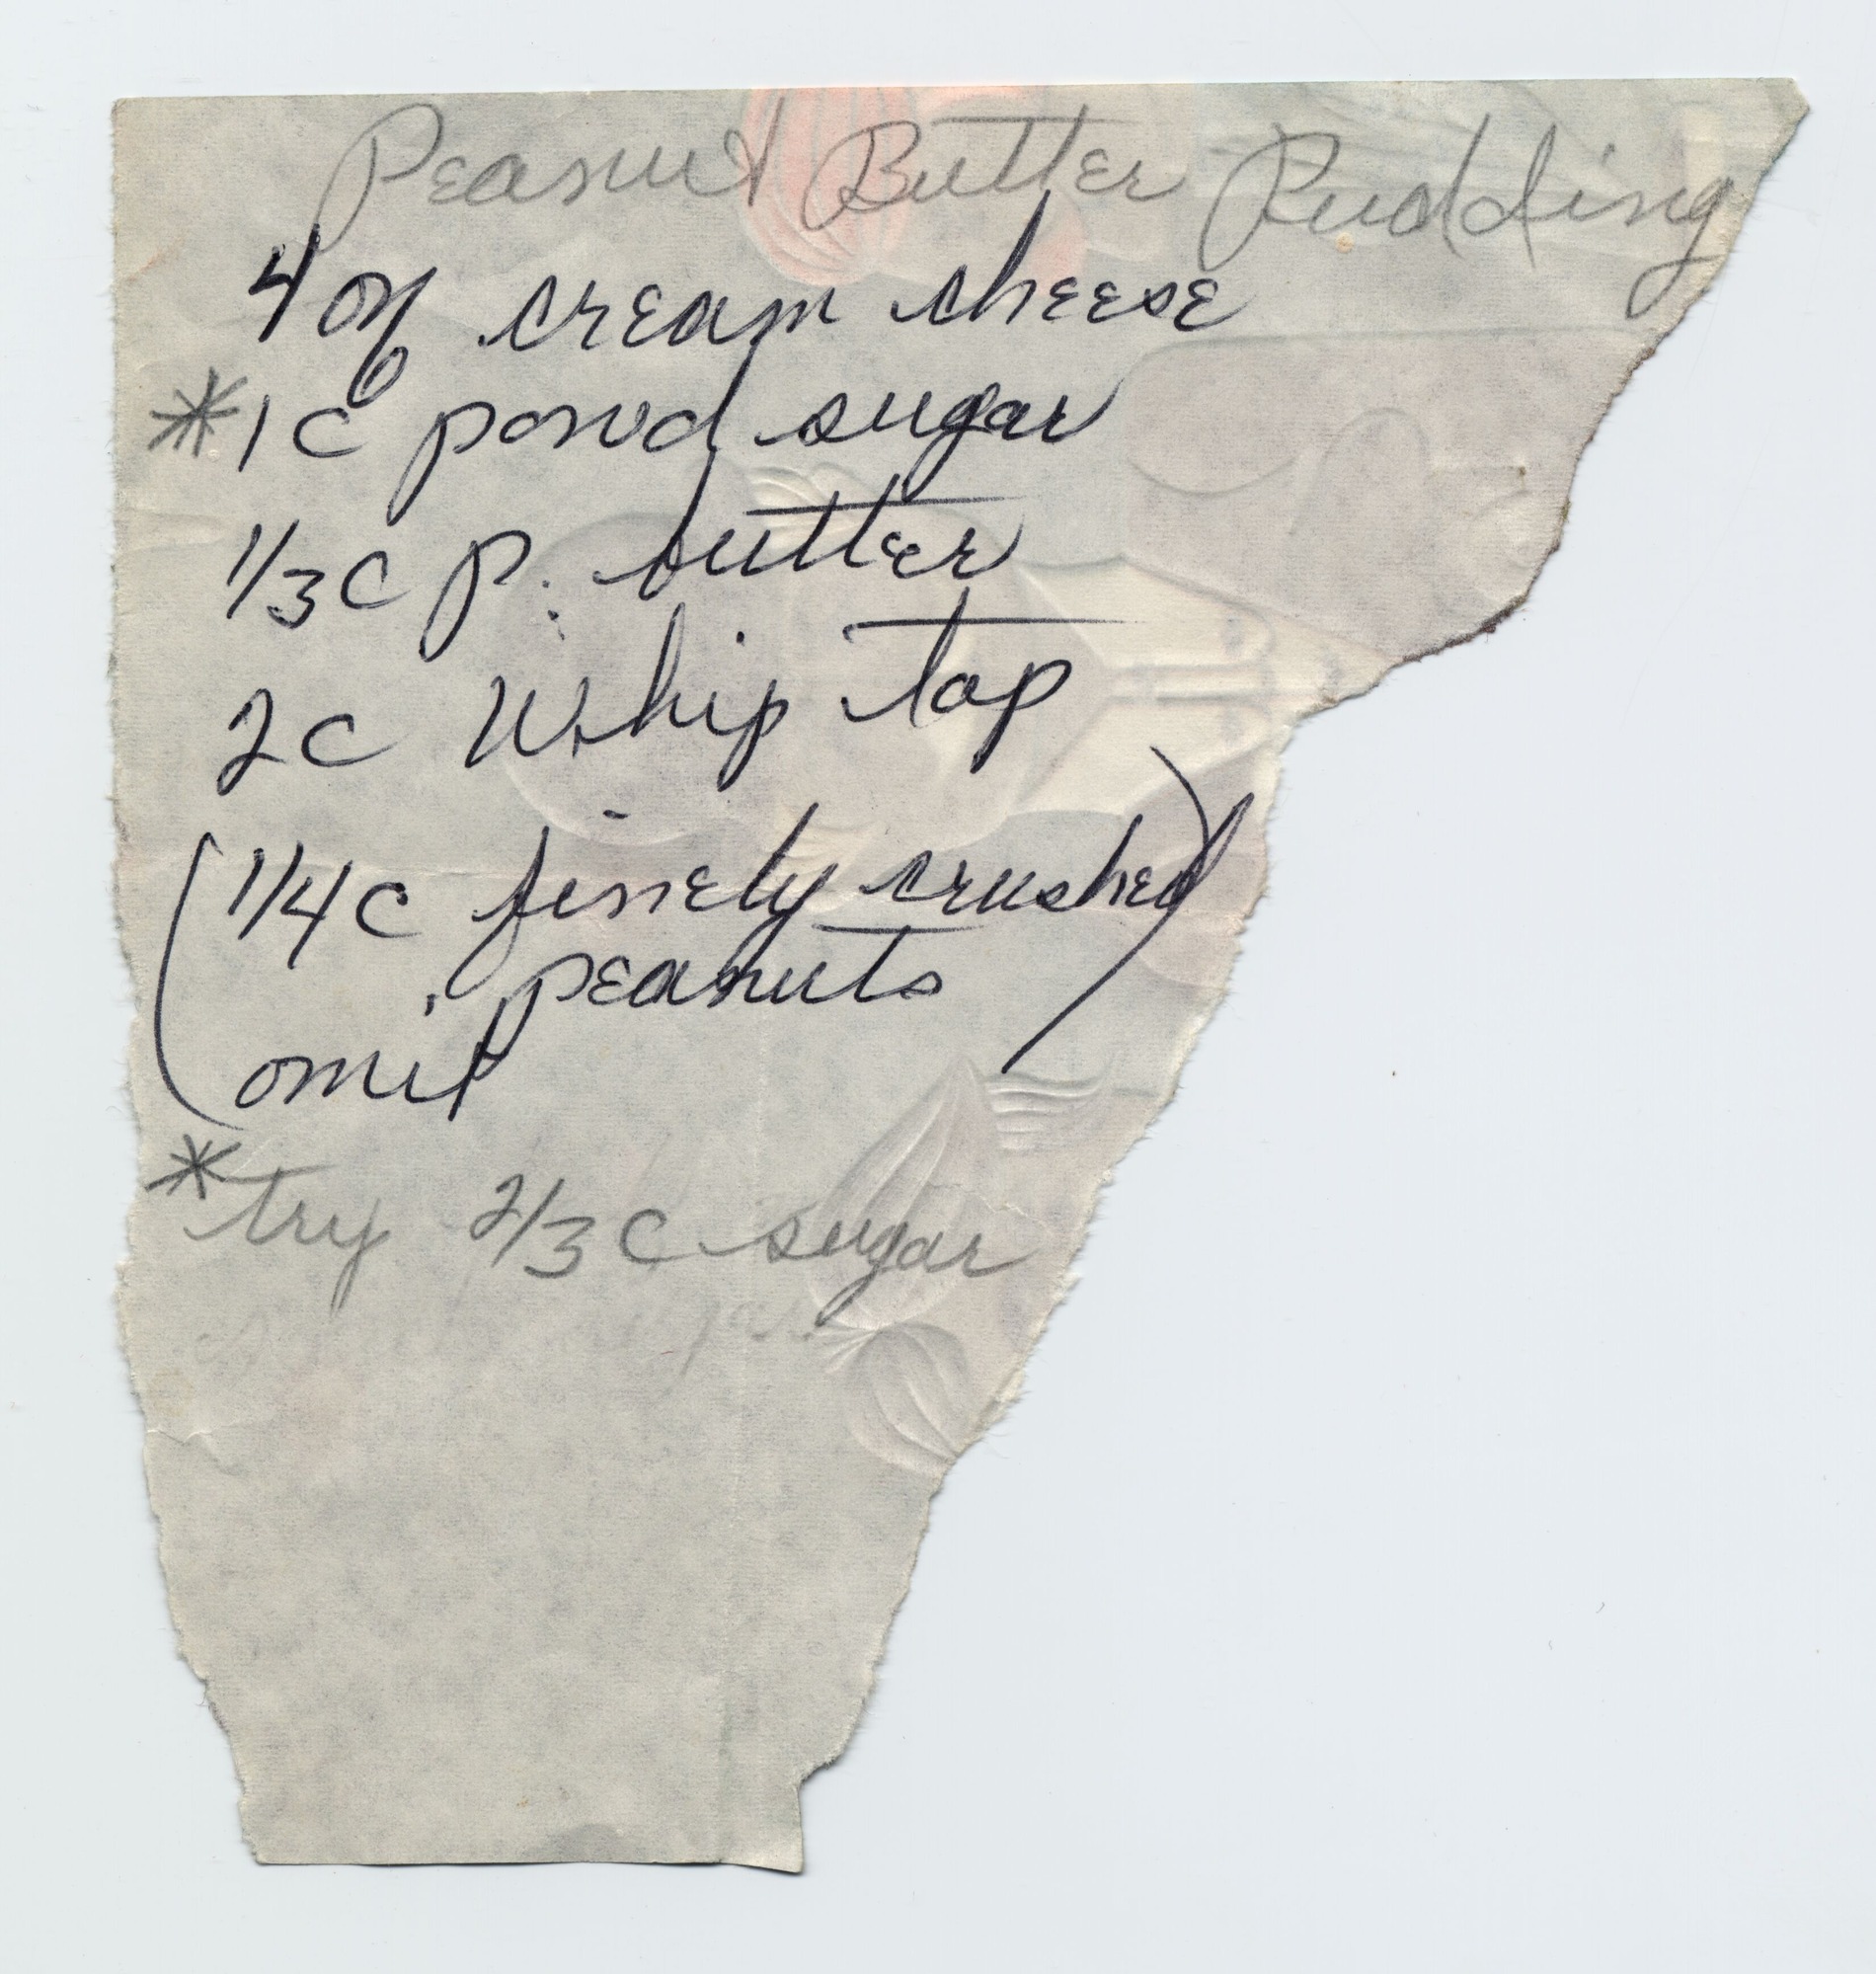 Peanut Butter Pudding
4 oz cream cheese
*1 c powd sugar
1/3 c p. butter
2 c Whip top
(1/4 c finely crushed
peanuts
omit)
*try 2/3 c sugar